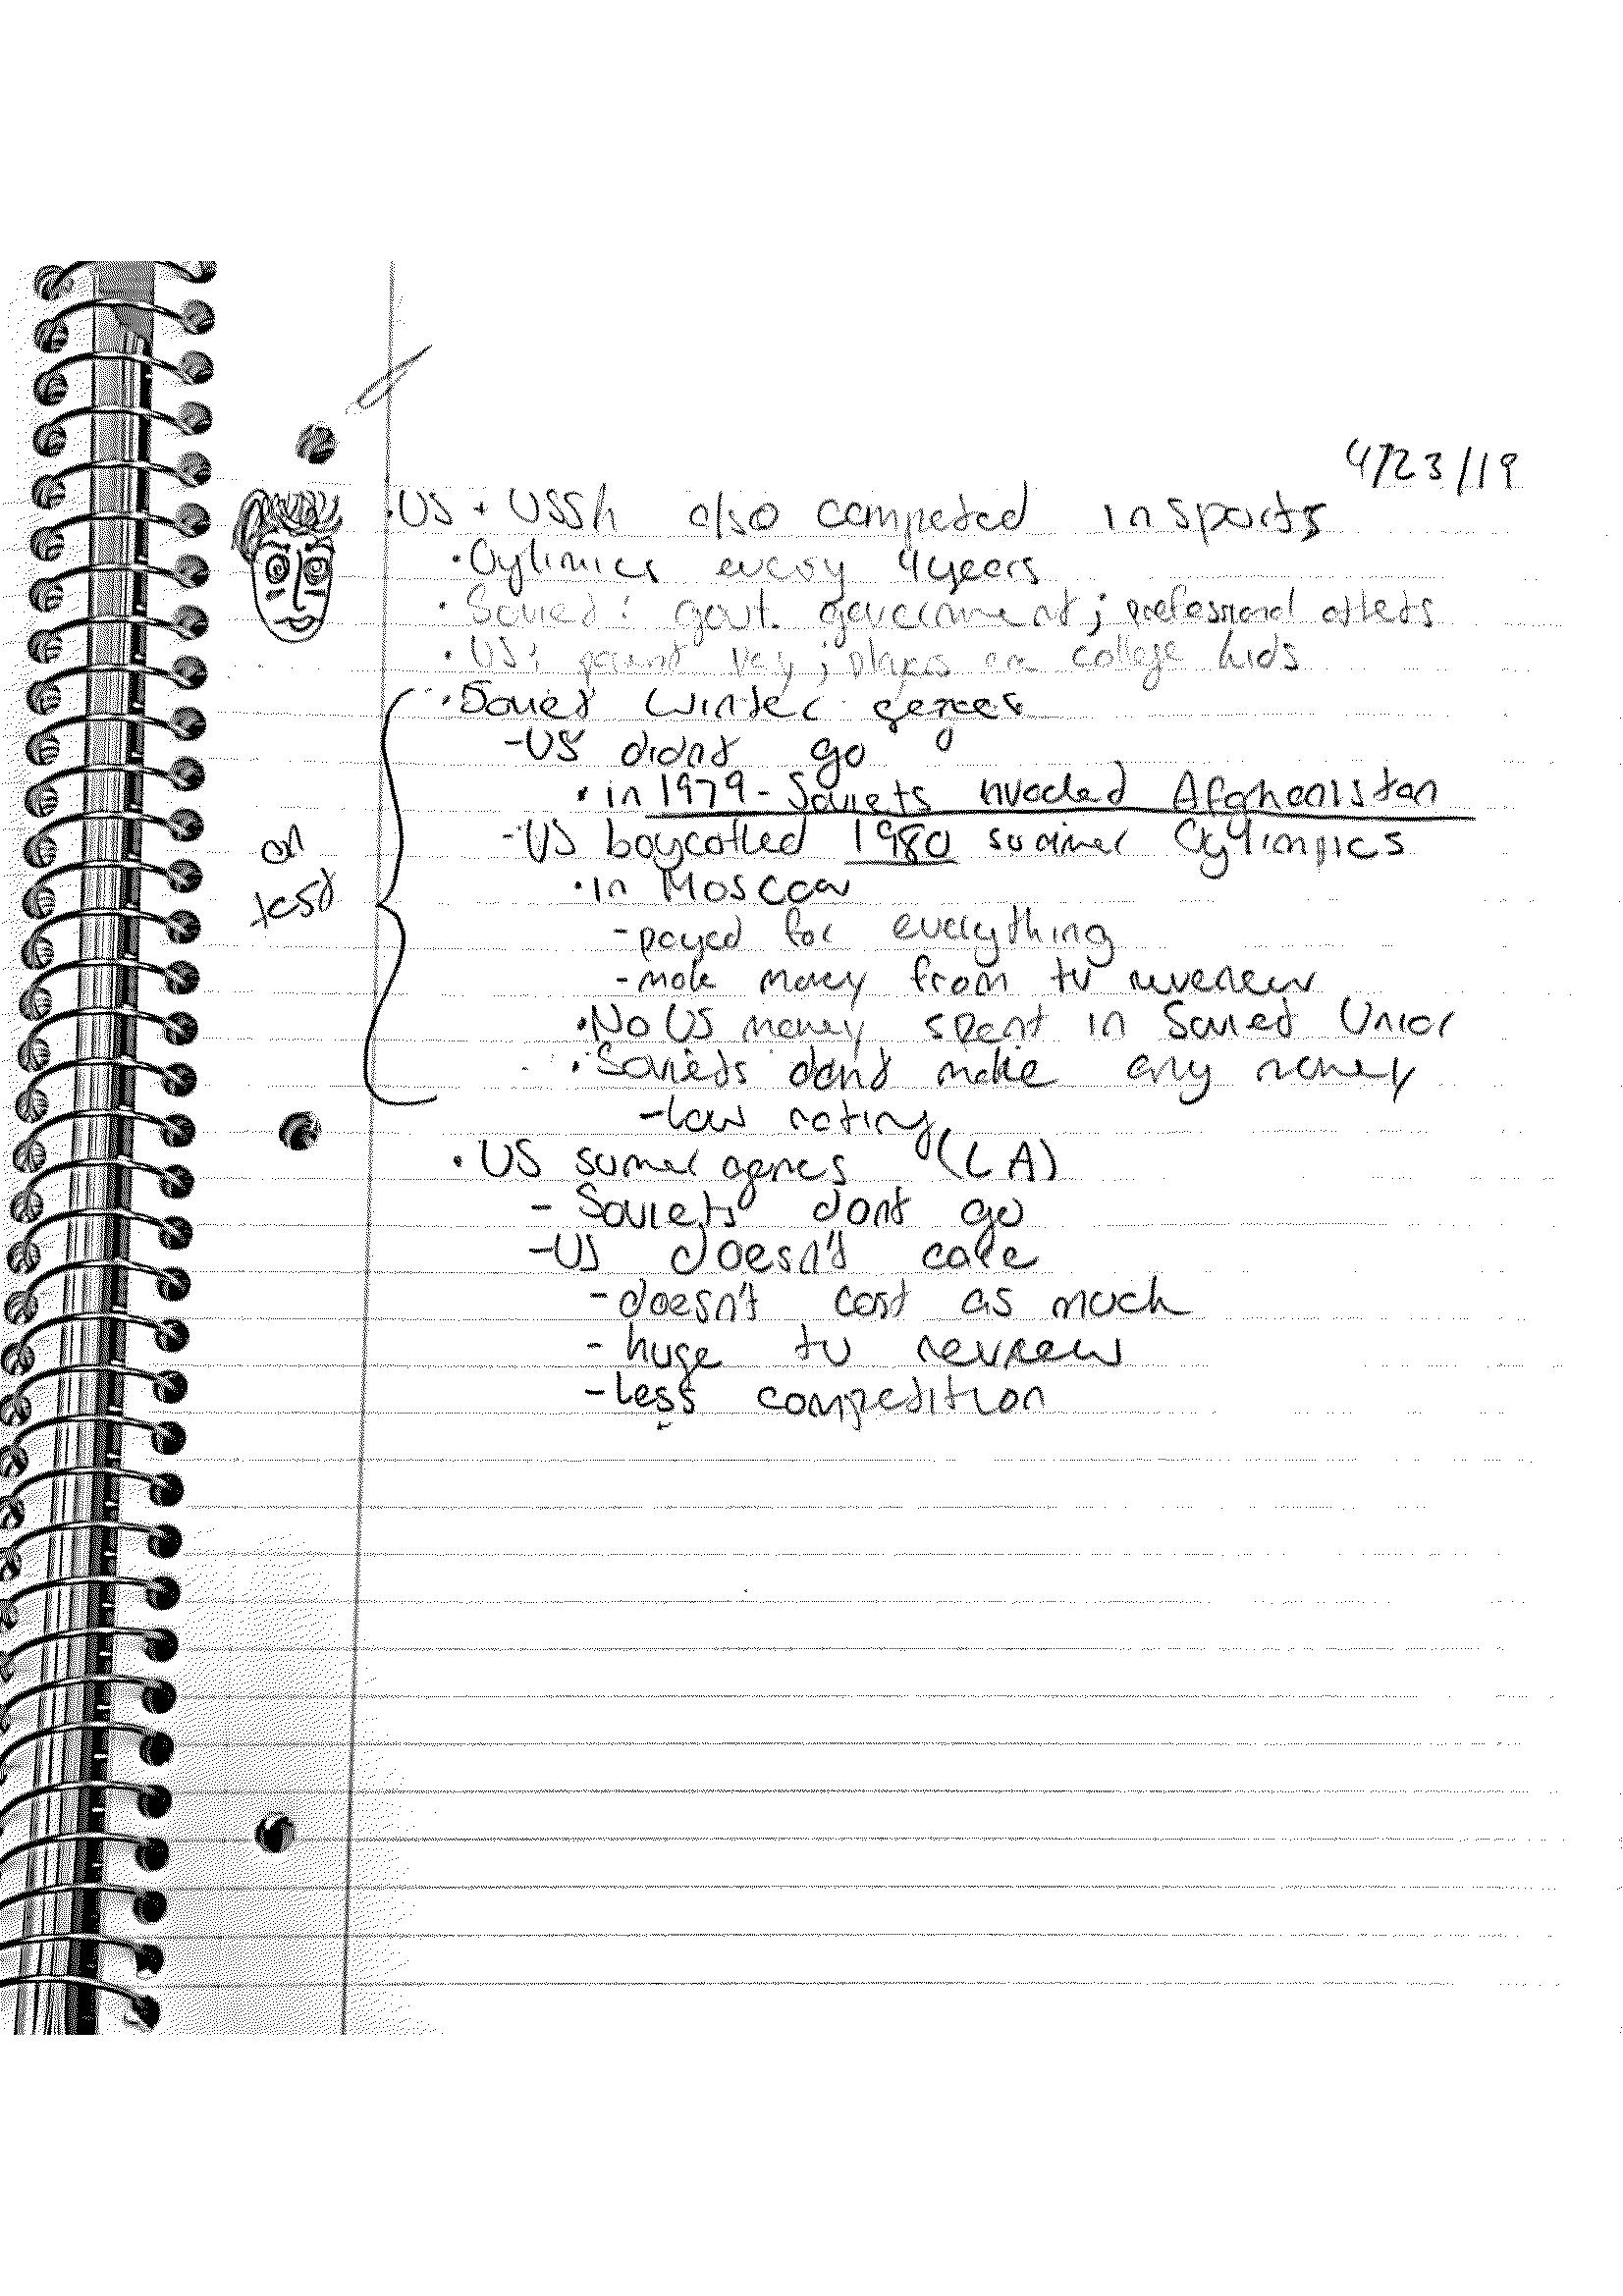 4/23/19
·US + USSR also competed in sports
·Oylimics every 4 years
·Soviet: govt. government; professional atlets
·US: parent pay; players are college kids
·Soviet winter games
-US didnt go
·in 1979 - Soviets nvaded Afghanistan
-US boycotted 1980 summer Oylimpics
on
test
·in Moscow
-payed for everything
-make money from tv
·No US money spent in Soviet Union
·Soviets dont make any money
-low rating
·US sumer games (LA)
-Soviets dont go
-US doesn't care
-doesn't cost as much
-huge tv
-less competition